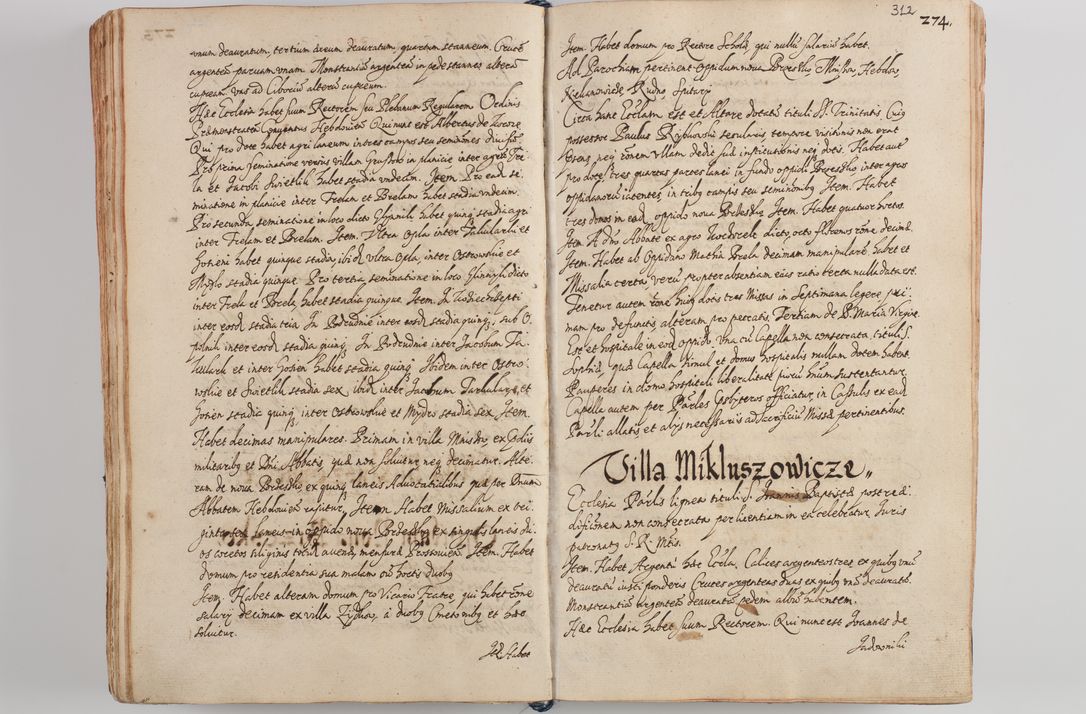 vnum deauratum, tertium aereum deauratum, quartum stanneum. Crucē
argenteā paruam vnam. Monstrantiā argenteā in pede stannea alterā
cupream. Vnū ad Ciboriū alterū cupreum.
Haec Ecclesia habet suum Rectorem seu Plebanum Regularem Ordinis
Praemonstraten Conuentus Hebdouien Qui nunc est Albertus de
Qui pro dote habet agri laneum in tres campos seu seminones diuisū
Pro prima seminatione versus villam in planicie inter agros Tre
la et Jacobi Swietlik habet stadia vndecim. Item. Pro ead se
minatione in planicie inter Trelam et Brelam habet stadia vndecim.
Pro secunda seminatione in loco dicto habet quinq stadia agri
inter Trelam et Brelam. Item. Vltra Opla inter et
Gosieni habet quinque stadia, ibid vltra Opla, inter Ostrowskie et
Mydlo stadia quinque. Pro tertia seminatione in loco dicto
inter Trela et Brela habet stadia quinque. Item. In
inter eosd stadia tria. In Podrudnie inter eosd stadia quinq, sub O
polnik inter eosd stadia quinq. In Podrudnie inter Jacobum Ta
lularek et inter Gosien habet stadia quinq. Ibidem inter Ostro
wskie et Swietlik stadia sex, ibid inter Jacobum et
Gosien stadia quinq, inter Ostrowskie et Mydlo stadia sex. Item.
Habet decimas manipulares. Primam in villa ex praediis
militaribq et Dni Abbatis, qua non soluitur neq decimatur. Alte
ram de noua Brdesko ex quinq laneis Aduocatialibus qua per Dnum
Abbatem Hebdouien rapitur, Item Habet Missalium ex tri
ginta laneis in oppido noua Brdesko ex singulis laneis du
os coretos siliginis totid auenae, mensura Prossouien. Item. Habet
domum pro residentia sua malam cū hortis duobq
Item. Habet alteram domum pro Vicario Fratre, qui habet rōne
salarij decimam ex villa a duobq Cmetonibq et haec
soluitur.
Itē Habet
312
274.
Item. Habet domum pro Rectore Scholae, qui nullū salariū habet.
Ad Parochiam pertinent Oppidum noua Brzesko, Hebdow,
Rudno,
Circa hanc Ecclam est et Altare dotatū tituli SS. Trinitatis Cuiq
possessor Paulus Rybowski secularis tempore visitōnis non erat
psens, neq rōnem vllam dedit suae institutionis neq dotis. Habet aut
pro dote tres quartas partes lanei in fundo oppidi Brzesko inter agros
oppidanorū iacentes in tribq campis seu seminonibq. Item. Habet
tres domos in ead oppido noua Brzesko, Item. Habet quatuor hortos.
Item. A Dno Abbate ex agro dicto, octo florenos rōne decimae.
Item. Habet ab oppidano Mathia Brela decimam manipularē, habet et
Missalia certa, verū propter absentiam eius ratio certa nulla data est.
Tenetur autem rōne huiq dotis tres Missas in Septimana legere, pri
mam pro defunctis, alteram pro peccatis, Tertiam de B. Maria Virgine.
Est et hospitale in eod oppido, vna cū Capella non consecrata, tituli S.
Sophiae, quae Capella simul et domus hospitalis nullam dotem habent.
Pauperes in domo hospitali liberalitate piorū hnum sustentantur.
Capella autem per Parles Psbyteros officiatur, in Casulis ex ead
Parli allatis et alys necessarijs ad sacrificiū Missae pertinentibus.
Villa Mikluszowicze,,
Ecclesia Parlis lignea tituli S. Joannis Baptistae post reae
dificōnem non consecrata per licentiam in ea celebratur. Juris
patronatq S. R. Mtis.
Item. Habet Argenti haec Eccla. Calices argenteos tres ex quibq vnū
deauratū iusti ponderis Cruces argenteas duas ex quibq vnā deauratā.
Monstrantiā argenteā deauratā pedem albū habentem.
Haec Ecclesia habet suum Rectorem. Qui nunc est Joannes de
Jadowniki